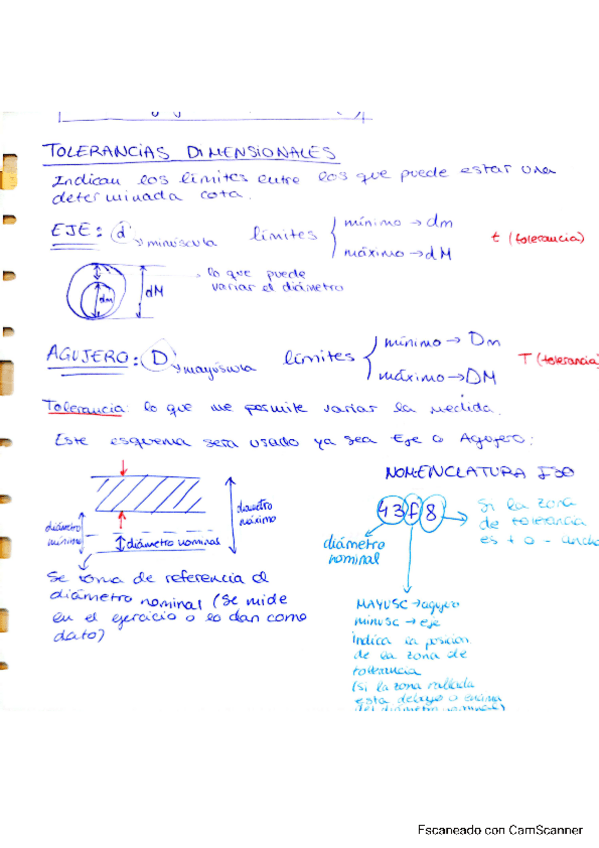 TOLERANCIAS DIMENSIONALES
Indican los límites entre los que puede estar una
determinada cota.
EJE: d minúscula límites mínimo → dm
máximo → dM
t (tolerancia)
lo que puede
variar el diámetro
dm
dM
AGUJERO: D mayúscula límites mínimo → Dm
máximo → DM
T (tolerancia)
Tolerancia: lo que me permite variar la medida.
Este esquema sera usado ya sea Eje o Agujero:
diámetro
mínimo
diámetro nominal
diametro
máximo
Se toma de referencia el
diámetro nominal (Se mide
en el ejercicio o lo dan como
dato)
NOMENCLATURA ISO
43 f 8
diámetro
nominal
Si la zona
de tolerancia
es + o - ancha
MAYUSC → agujero
MINUSC → eje
indica la posicion
de la zona de
tolerancia
(si la zona rallada
esta debajo o encima
del diámetro nominal)
Escaneado con CamScanner